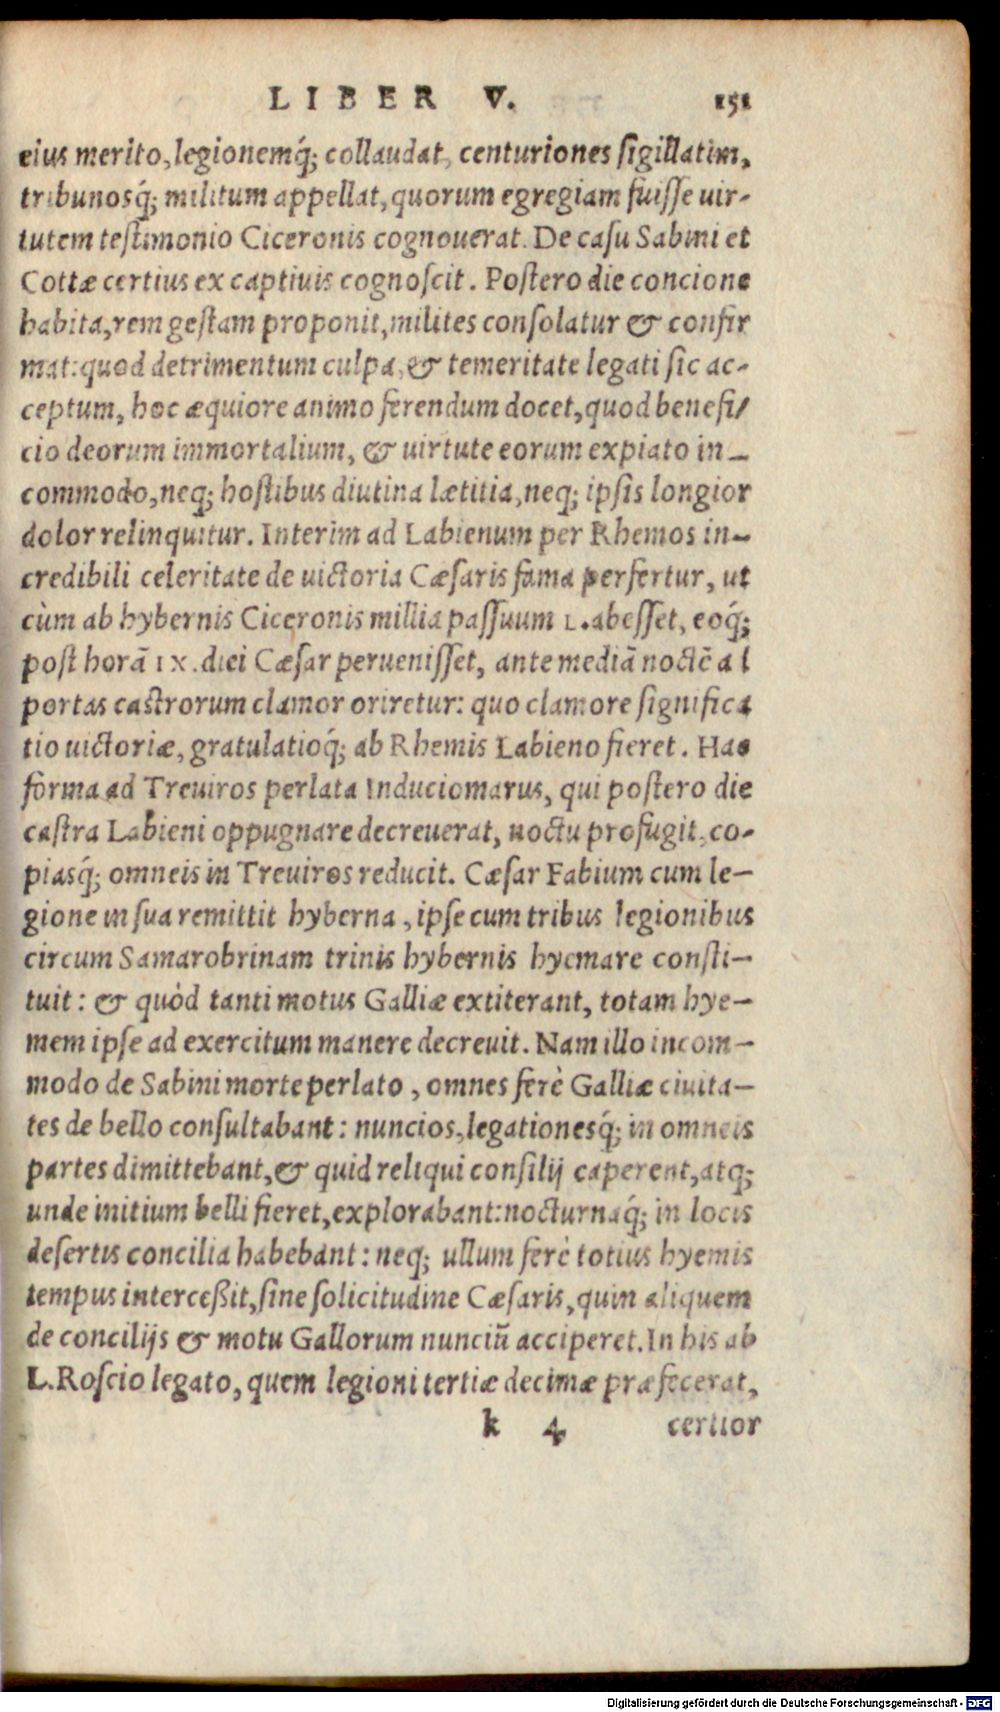 LIBER V. 151
eius merito, legionemq́; collaudat, centuriones sigillatim,
tribunosq́; militum appellat, quorum egregiam fuisse uir-
tutem testimonio Ciceronis cognouerat. De casu Sabini et
Cottæ certius ex captiuis cognoscit. Postero die concione
habita, rem gestam proponit, milites consolatur & confir
mat: quod detrimentum culpa, & temeritate legati sic ac-
ceptum, hoc æquiore animo ferendum docet, quod benefi/
cio deorum immortalium, & uirtute eorum expiato in-
commodo, neq; hostibus diutina lætitia, neq; ipsis longior
dolor relinquitur. Interim ad Labienum per Rhemos in-
credibili celeritate de uictoria Cæsaris fama perfertur, ut
cùm ab hybernis Ciceronis millia passuum L. abesset, eoq́;
post horã IX. diei Cæsar peruenisset, ante mediã noctẽ a l
portas castrorum clamor oriretur: quo clamore significa
tio uictoriæ, gratulatioq́; ab Rhemis Labieno fieret. Hac
forma ad Treuiros perlata Induciomarus, qui postero die
castra Labieni oppugnare decreuerat, noctu profugit, co-
piasq́; omneis in Treuiros reducit. Cæsar Fabium cum le-
gione in sua remittit hyberna, ipse cum tribus legionibus
circum Samarobrinam trinis hybernis hyemare consti-
tuit: & quòd tanti motus Galliæ extiterant, totam hye-
mem ipse ad exercitum manere decreuit. Nam illo incom-
modo de Sabini morte perlato, omnes ferè Galliæ ciuita-
tes de bello consultabant: nuncios, legationesq́; in omneis
partes dimittebant, & quid reliqui consilij caperent, atq;
unde initium belli fieret, explorabant: nocturnaq́; in locis
desertis concilia habebant: neq; ullum ferè totius hyemis
tempus interceßit, sine solicitudine Cæsaris, quin aliquem
de concilijs & motu Gallorum nunciũ acciperet. In his ab
L. Roscio legato, quem legioni tertiæ decimæ præfecerat,
k 4 certior
Digitalisierung gefördert durch die Deutsche Forschungsgemeinschaft - DFG